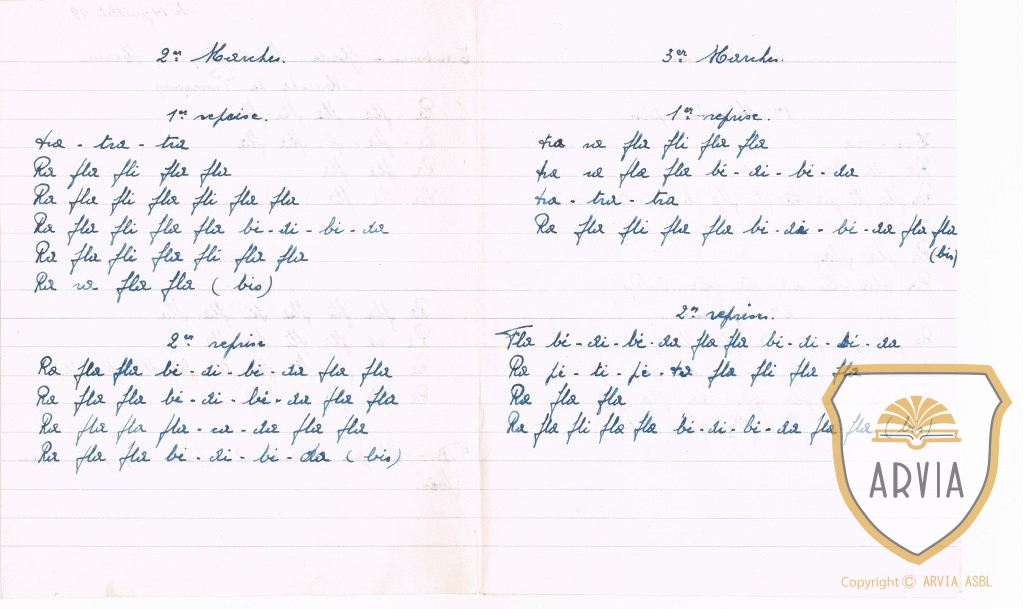 2er Marches.
1er repaise.
tra - tra - tra
Ra fla fli fla fla
Ra fla fli fla fli fla fla
Ra fla fli fla fla bi - di - bi - da
Ra fla fli fla fli fla fla
Ra ra fla fla ( bis)
2er reprise
Ra fla fla bi - di - bi - da fla fla
Ra fla fla bi - di - bi - da fla fla
Ra fla fla fla - ra - da fla fla
Ra fla fla bi - di - bi - da ( bis)
3er Marches.
1er reprise.
tra ra fla fli fla fla
tra ra fla fla bi - di - bi - da
tra - tra - tra
Ra fla fli fla fla bi - di - bi - da fla fla
(bis)
2er reprises.
Fla bi - di - bi - da fla fla bi - di - bi - da
Ra pi - ti - pi - ta fla fli fla fla
Ra fla fla
Ra fla fli fla fla bi - di - bi - da fla fla (bis)
ARVIA
Copyright © ARVIA ASBL